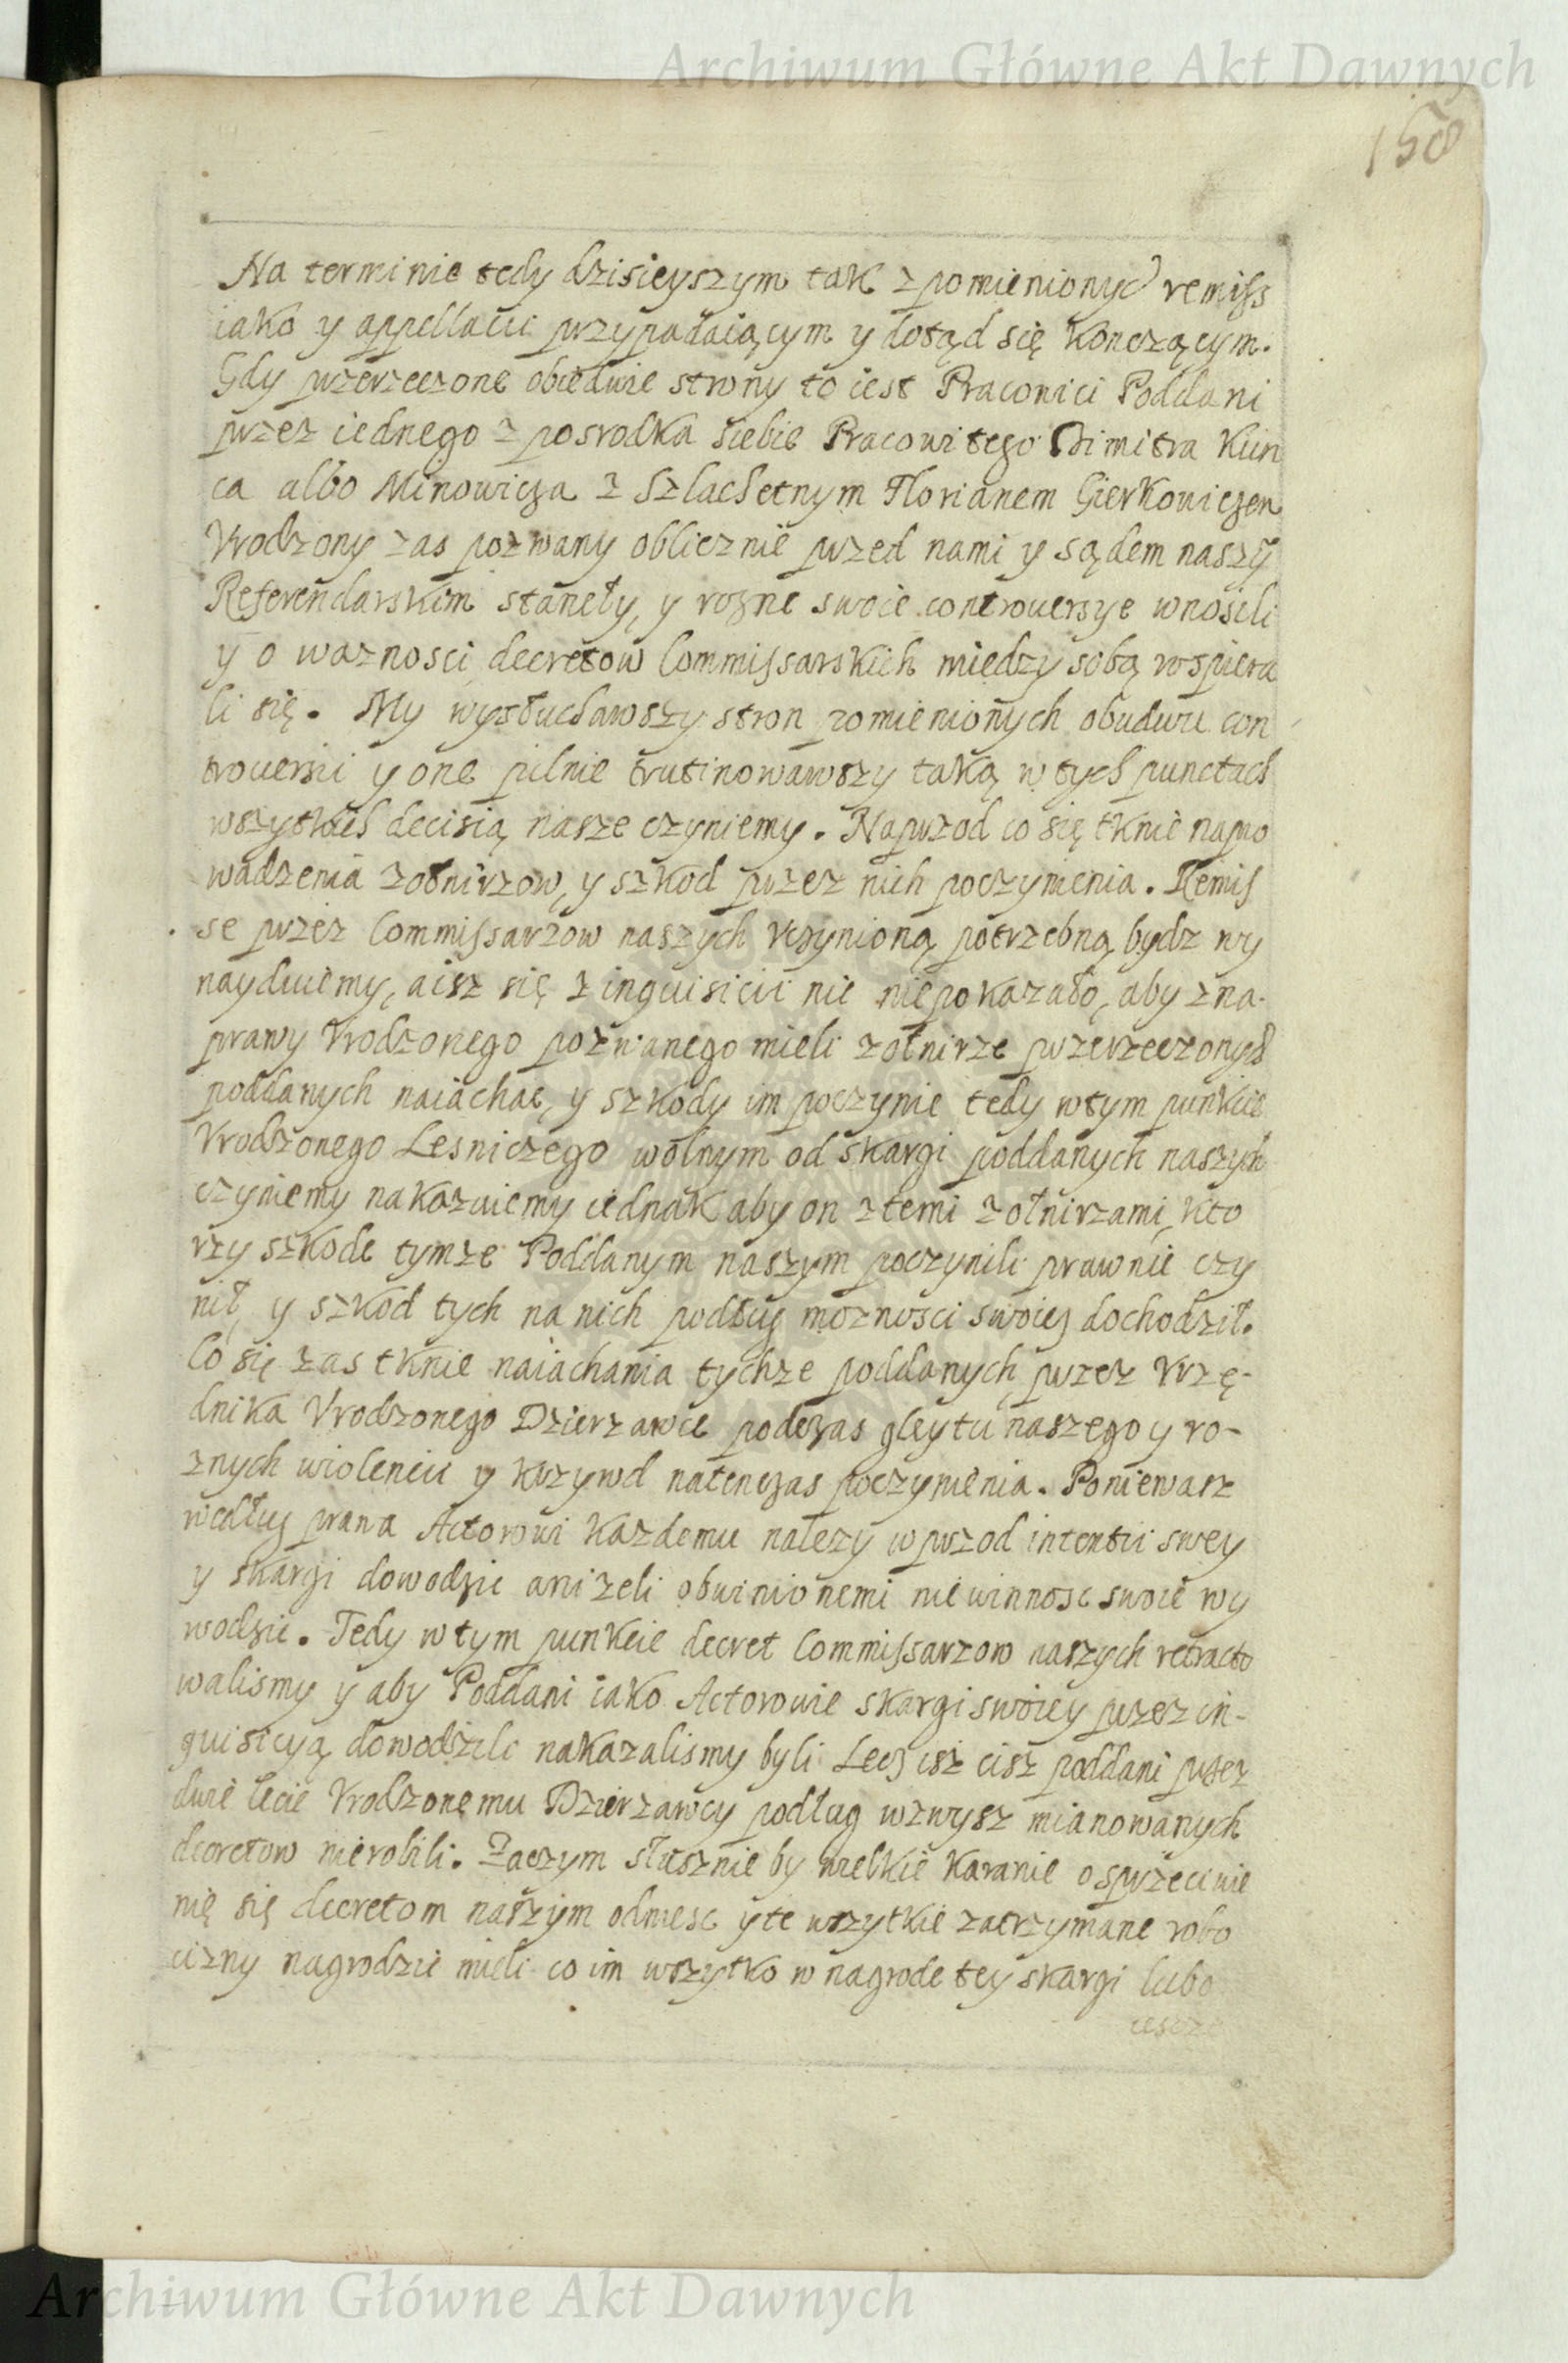 Archiwum Główne Akt Dawnych
158
Na terminie tedy dzisieyszym tak z pomienionych remiss
iako y appellacii przypadaiącym y dotąd się konczącym.
Gdy przerzeczone obiedwie strony to iest Pracowici Poddani
przez iednego z posrodka siebie Pracowitego Dimitra Kun
ca albo Minowicza z Szlachetnym Florianem Gierkowiczem
Vrodzony zas pozwany oblicznie przed nami y sądem naszy
Referendarskim stanęły, y rozne swoie controuersye wnosili
y o waznosci decretow Commissarskich między sobą wspiera
li się. My wysłuchawszy stron pomienionych obudwu con
trouersii y one pilnie trutinowawszy taką w tych punctach
wszytkich decisią nasze czyniemy. Naprzod co się tknie napro
wadzenia zołnirzow, y szkod przez nich poczynienia. Remis
se przez Commissarzow naszych vczynioną potrzebną bydz wy
nayduiemy, aisz się z inquisicii nic niepokazało, aby zna-
prawy Vrodzonego pozwanego mieli zołnirze przerzeczonych
poddanych naiachac, y szkody im poczynic tedy wtym punkcie
Vrodzonego Lesniczego wolnym od skargi poddanych naszych
czyniemy nakazuiemy iednak aby on z temi zołnirzami, kto
rzy szkode tymze Poddanym naszym poczynili prawnie czy
nił, y szkod tych na nich podług moznosci swoiey dochodził.
Co się zas tknie naiachania tychze poddanych przez Vrzę-
dnika Vrodzonego Dzierzawce podczas gleytu naszego y ro-
znych violencii y krzywd natenczas poczynienia. Poniewasz
według prawa Actorowi kazdemu nalezy wprzod intentii swey
y skargi dowodzic anizeli obwinionemi niewinnosc swoie wy
wodzic. Tedy w tym punkcie decret Commissarzow naszych retracto
walismy y aby Poddani iako Actorowie skargi swoiey przez in-
quisicyą dowodzili nakazalismy byli Lecz isz cisz poddani przez
dwie lecie Vrodzonemu Dzierzawcy podług wzwysz mianowanych
decretow nierobili. Zaczym słusznie by wielkie karanie o sprzeciwie
nię się decretom naszym odniesc y te wszytkie zatrzymane robo
cizny nagrodzic mieli co im wszytko w nagrode tey skargi lubo
iescze
Archiwum Główne Akt Dawnych